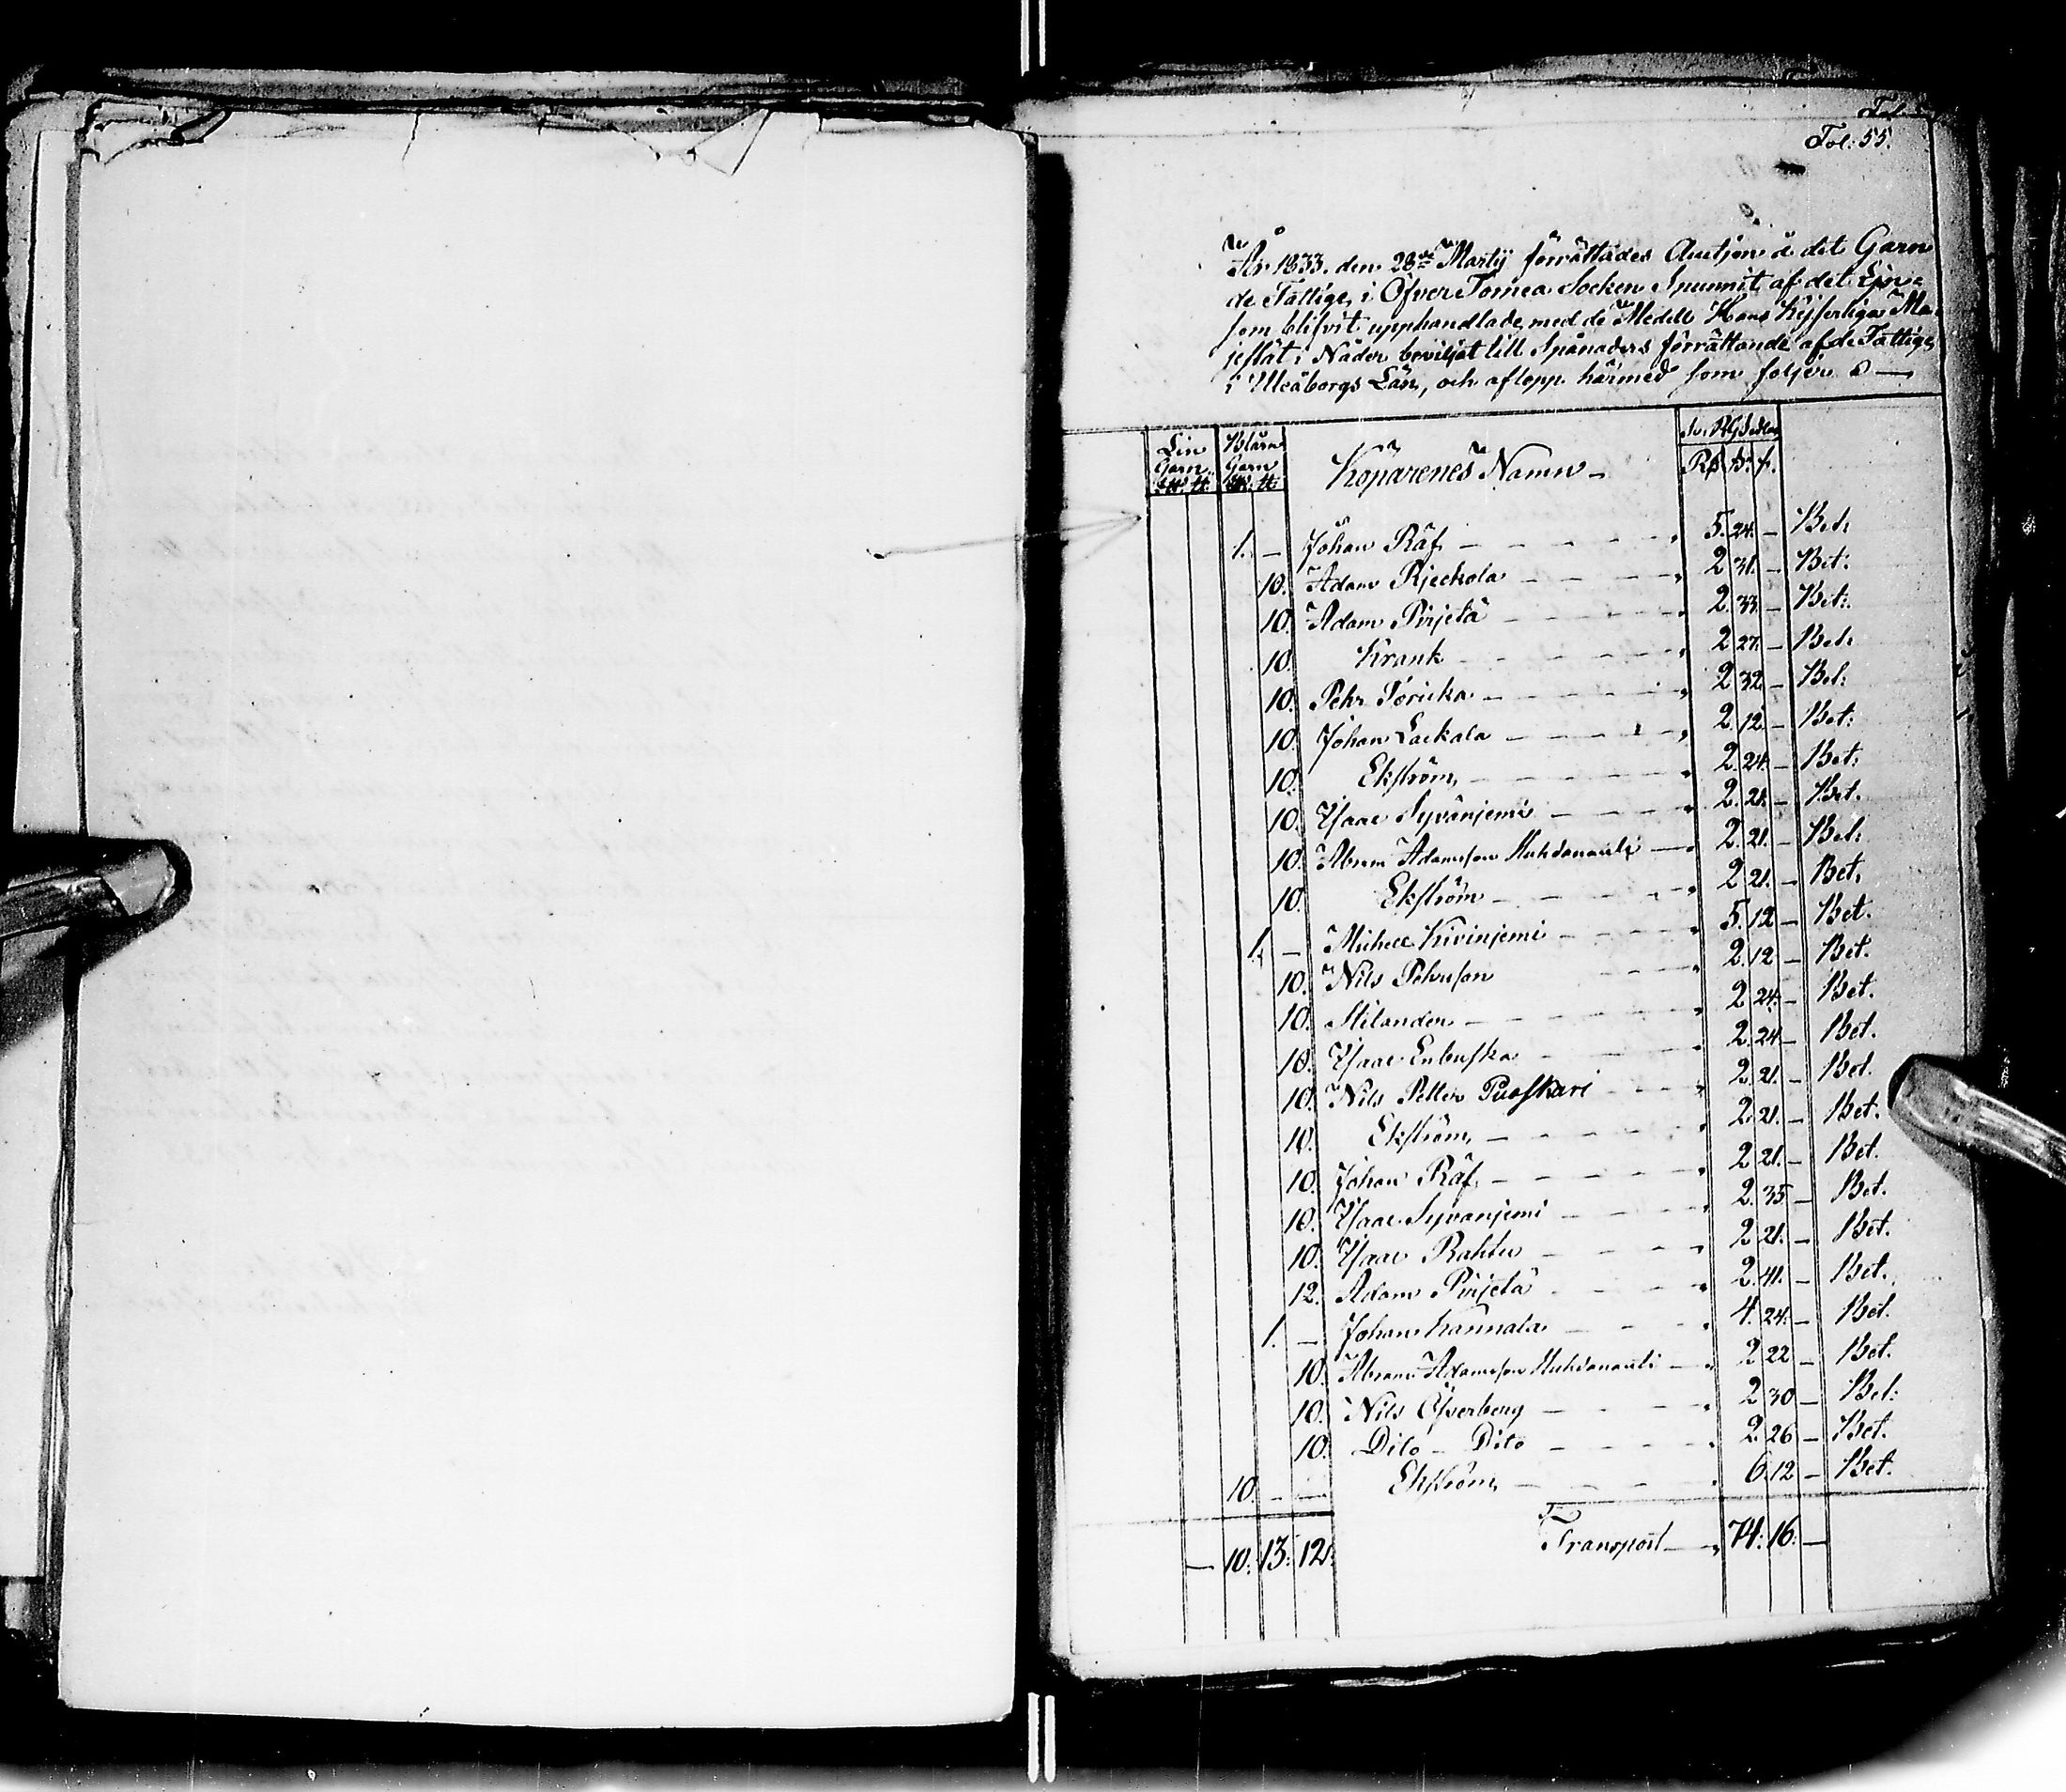 Fol: 55.
År 1833. den 28de Martij förrättades Auctjon å det Garn
de Fattige, i Öfver Tornea Socken Spunnit af det Lin
som blifvit upphandlade med de Medell Hans Kejserliga Ma-
jestät i Nåder beviljat till Spånaders förrättande af de Fattige
i Uleåborgs Län, och aflopp härmed som följer
Lin Garn Blårn Garn Köparenes Namn Rβ
1. — Johan Räf 5. 24. — Bet:
10. Adam Rjeckola 2 31. — Bet:
10. Adam Pirjetä 2. 33. — Bet:
10. Krank 2 27. — Bet:
10. Pehr 2 32 — Bet:
10. Johan Lackala 2 12 — Bet:
10. Ekström 2. 24. — Bet:
10. Isaac Syvänjemi 2. 21. — Bet.
10. Abram Adamsson 2. 21. — Bet:
10. Ekström 2 21. — Bet.
1. — Michell Kivinjemi 5. 12 — Bet.
10. Nils Pehrsson 2. 12 — Bet.
10. Stilander 2 24. — Bet.
10. Isaac 2. 24 — Bet.
10. Nils Petter Puoskari 2. 21. — Bet.
10. Ekström 2. 21. — Bet.
10. Johan Räf 2 21. — Bet.
10. Isaac Syvanjemi 2. 35 — Bet.
10. Isaac Rahtu 2 21. — Bet.
12. Adam Pirjetä 2. 41. — Bet.
1. — Johan Kannala 4. 24. — Bet.
10. Abram Adamsson 2 22 — Bet.
10. Nils Öfverberg 2 30 — Bet:
10. Dito – Dito 2. 26 — Bet.
10. — — Ekström 6. 12 — Bet.
— 10. 13. 12. Transport 74. 16. —